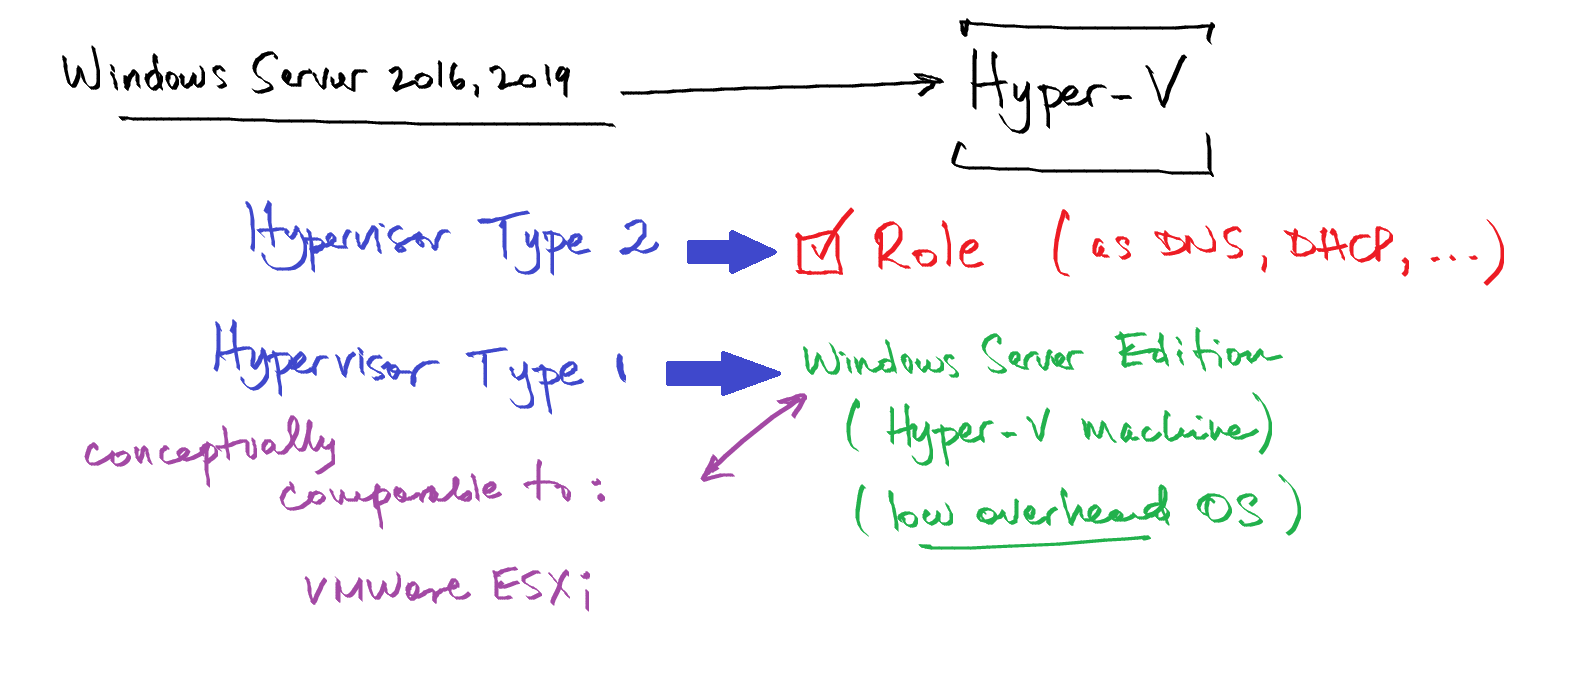 Windows Server 2016, 2019 Hyper-V
Hypervisor Type 2 Role (as DNS, DHCP, ...)
Hypervisor Type 1 Windows Server Edition
(Hyper-V machine)
conceptually
comparable to:
(low overhead OS)
VMWare ESXi